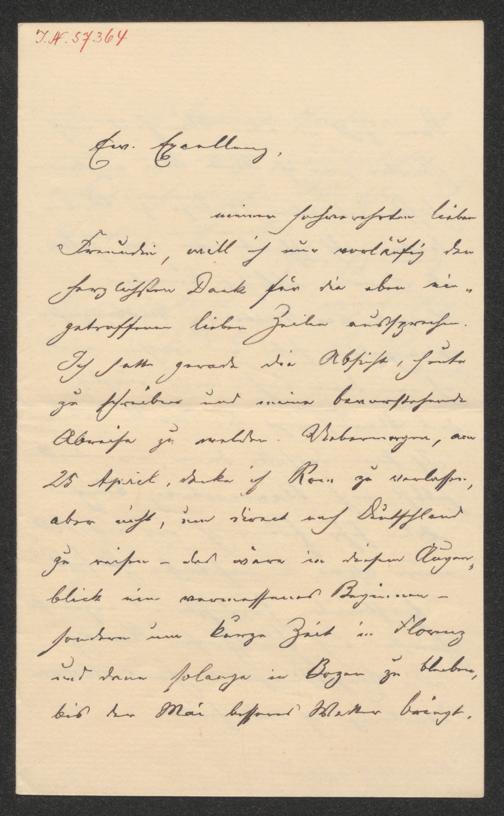 I.N. 57364
Ew. Excellenz,
meiner hochverehrten lieben
Freundin, will ich nur vorläufig den
herzlichsten Dank für die eben ein-
getroffenen lieben Zeilen aussprechen.
Ich hatte gerade die Absicht, heute
zu schreiben und meine bevorstehende
Abreise zu melden. Uebermorgen, am
25 April, denke ich Rom zu verlassen,
aber nicht, um direct nach Deutschland
zu reisen – das wäre in diesem Augen-
blick ein vermessenes Beginnen –
sondern um kurze Zeit in Florenz
und dann solange in Bozen zu bleiben,
bis der Mai besseres Wetter bringt.